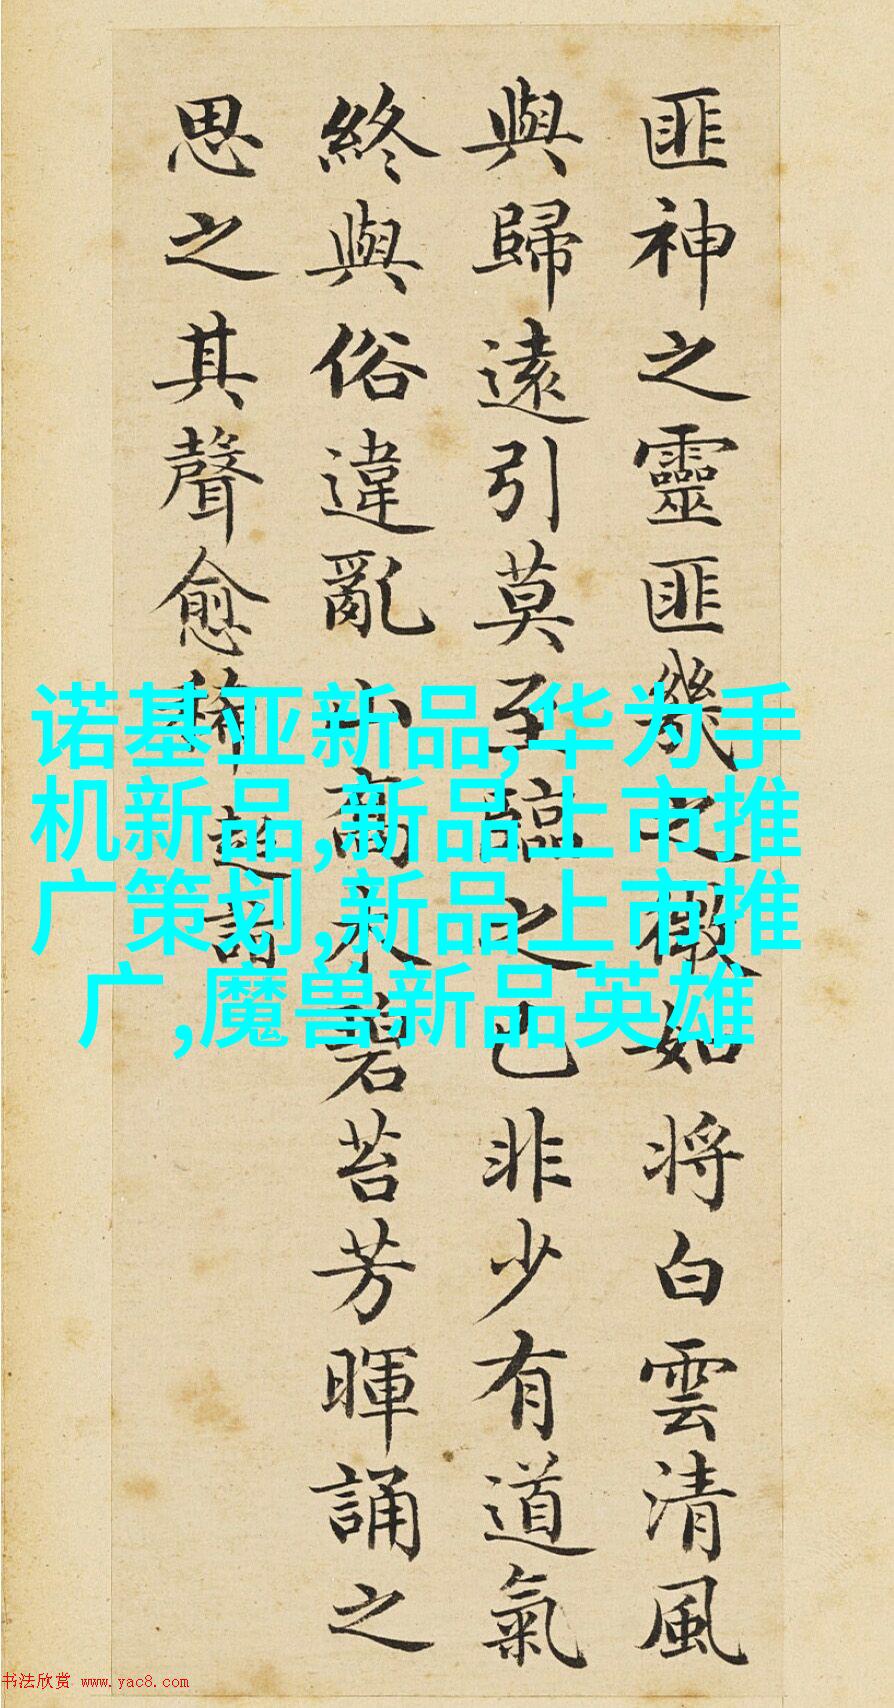 匪神之靈匪幾之微如将白雲清風
與歸遠引莫至臨之已非少有道氣
終與俗違亂山喬木碧苔芳暉誦之
思之其聲愈稀 超詣
诺基亚新品,华为手
机新品,新品上市推
广策划,新品上市推
广,魔兽新品英雄
书法欣赏 www.yac8.com